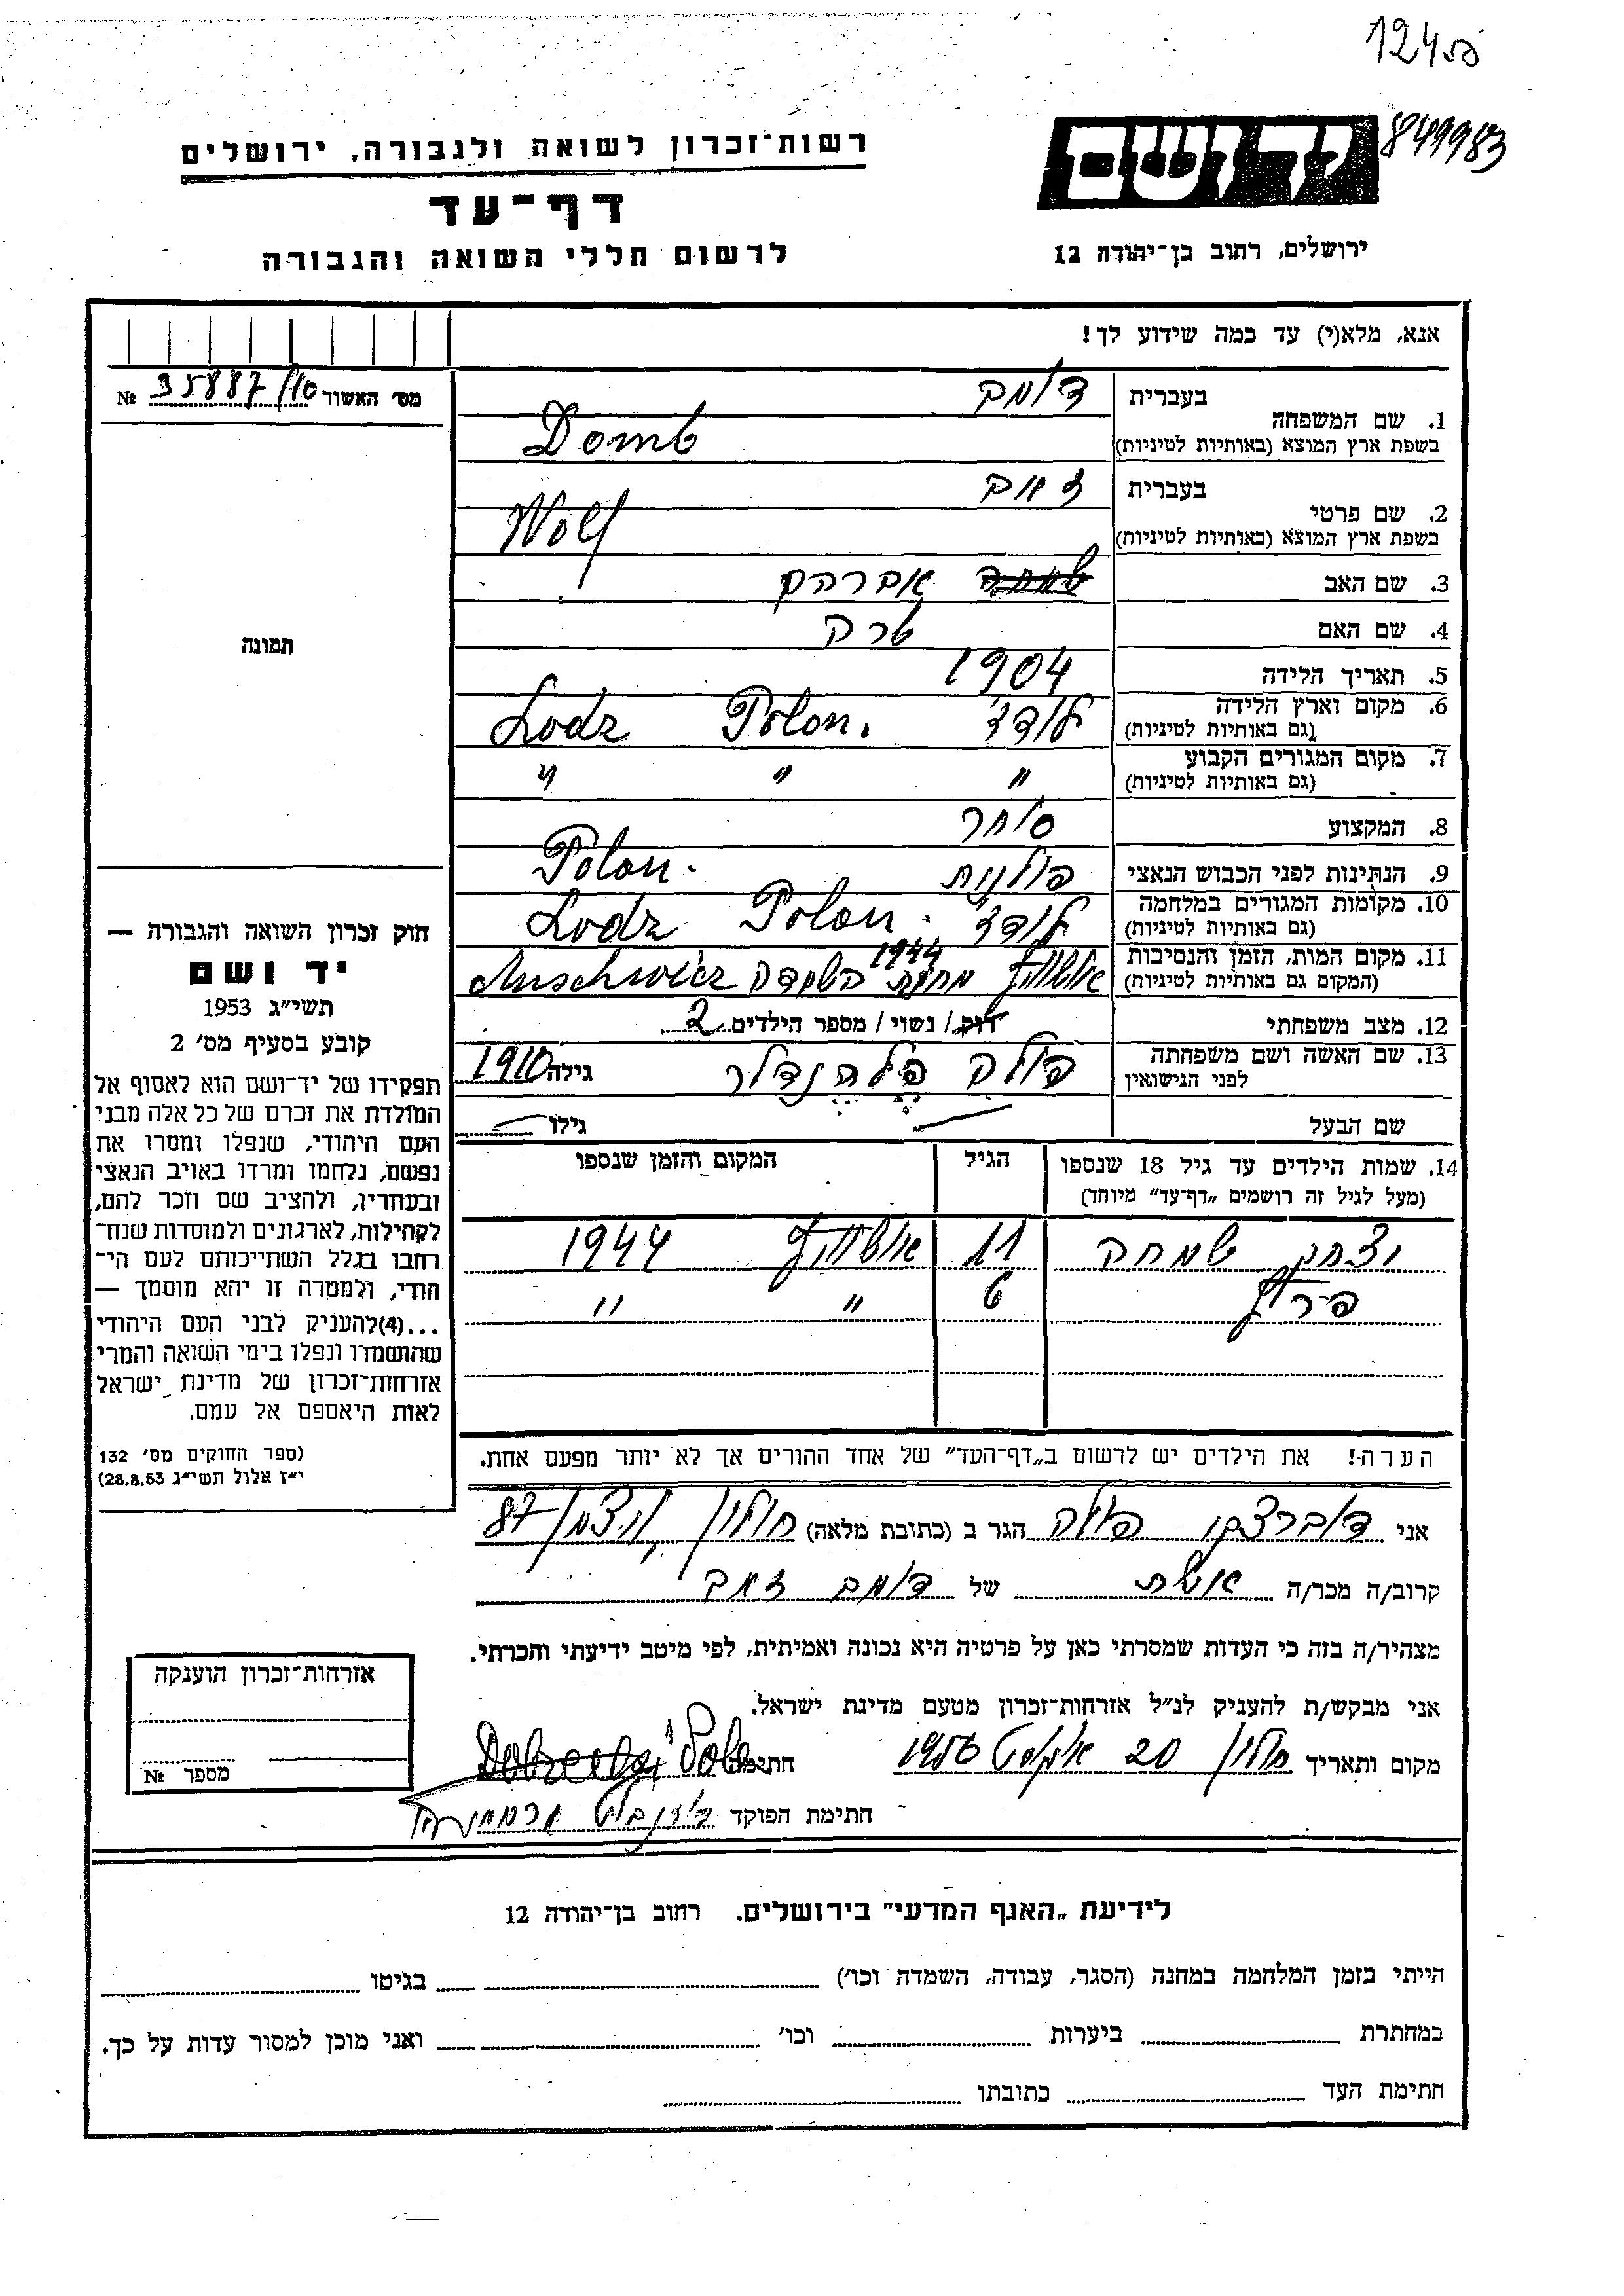 124
849983
יד ושם
רשות־זכרון לשואה ולגבורה, ירושלים
דף־עד
לרשום חללי השואה והגבורה
ירושלים, רחוב בן־יהודה 12
אנא, מלא(י) עד כמה שידוע לך!
מס׳ האשור 35887/10 №
תמונה
1. שם המשפחה
בעברית דומב
בשפת ארץ המוצא (באותיות לטיניות) Domb
2. שם פרטי
בעברית זאב
בשפת ארץ המוצא (באותיות לטיניות) Wolf
3. שם האב שמחה אברהם
4. שם האם
5. תאריך הלידה 1904
6. מקום וארץ הלידה לודז׳ Polon. Lodz
(גם באותיות לטיניות)
7. מקום המגורים הקבוע " " "
(גם באותיות לטיניות)
8. המקצוע סוחר
9. הנתינות לפני הכבוש הנאצי פולנית Polon.
10. מקומות המגורים במלחמה לודז׳ Polon. Lodz
(גם באותיות לטיניות)
11. מקום המות, הזמן והנסיבות אושוויץ מחנה השמדה 1944 Auschwicz
(המקום גם באותיות לטיניות)
12. מצב משפחתי רוק / נשוי / מספר הילדים 2
13. שם האשה ושם משפחתה פולה פלהנדלר גילה 1910
לפני הנישואין
שם הבעל — גילו —
14. שמות הילדים עד גיל 18 שנספו הגיל המקום והזמן שנספו
(מעל לגיל זה רושמים „דף־עד״ מיוחד)
יצחק שמחה 11 אושוויץ 1944
6 " "
הערה! את הילדים יש לרשום ב„דף־העד״ של אחד ההורים אך לא יותר מפעם אחת.
חוק זכרון השואה והגבורה —
יד ושם
תשי״ג 1953
קובע בסעיף מס׳ 2
תפקידו של יד־ושם הוא לאסוף אל
המולדת את זכרם של כל אלה מבני
העם היהודי, שנפלו ומסרו את
נפשם, נלחמו ומרדו באויב הנאצי
ובעוזריו, ולהציב שם וזכר להם,
לקהילות, לארגונים ולמוסדות שנח־
רבו בגלל השתייכותם לעם הי־
הודי, ולמטרה זו יהא מוסמך —
...(4) להעניק לבני העם היהודי
שהושמדו ונפלו בימי השואה והמרי
אזרחות־זכרון של מדינת ישראל
לאות היאספם אל עמם.
(ספר החוקים מס׳ 132
י״ז אלול תשי״ג 28.8.53)
אני פולה הגר ב (כתובת מלאה) חולון, ויצמן 87
קרוב/ה מכר/ה אשת של דומב זאב
מצהיר/ה בזה כי העדות שמסרתי כאן על פרטיה היא נכונה ואמיתית, לפי מיטב ידיעתי והכרתי.
אני מבקש/ת להעניק לנ״ל אזרחות־זכרון מטעם מדינת ישראל.
מקום ותאריך חולון 20 אוגוסט 1956 חתימה Pola
חתימת הפוקד
אזרחות־זכרון הוענקה
מספר №
לידיעת „האגף המדעי״ בירושלים. רחוב בן־יהודה 12
הייתי בזמן המלחמה במחנה (הסגר, עבודה, השמדה וכו׳) בגיטו
במחתרת ביערות וכו׳ ואני מוכן למסור עדות על כך.
חתימת העד כתובתו